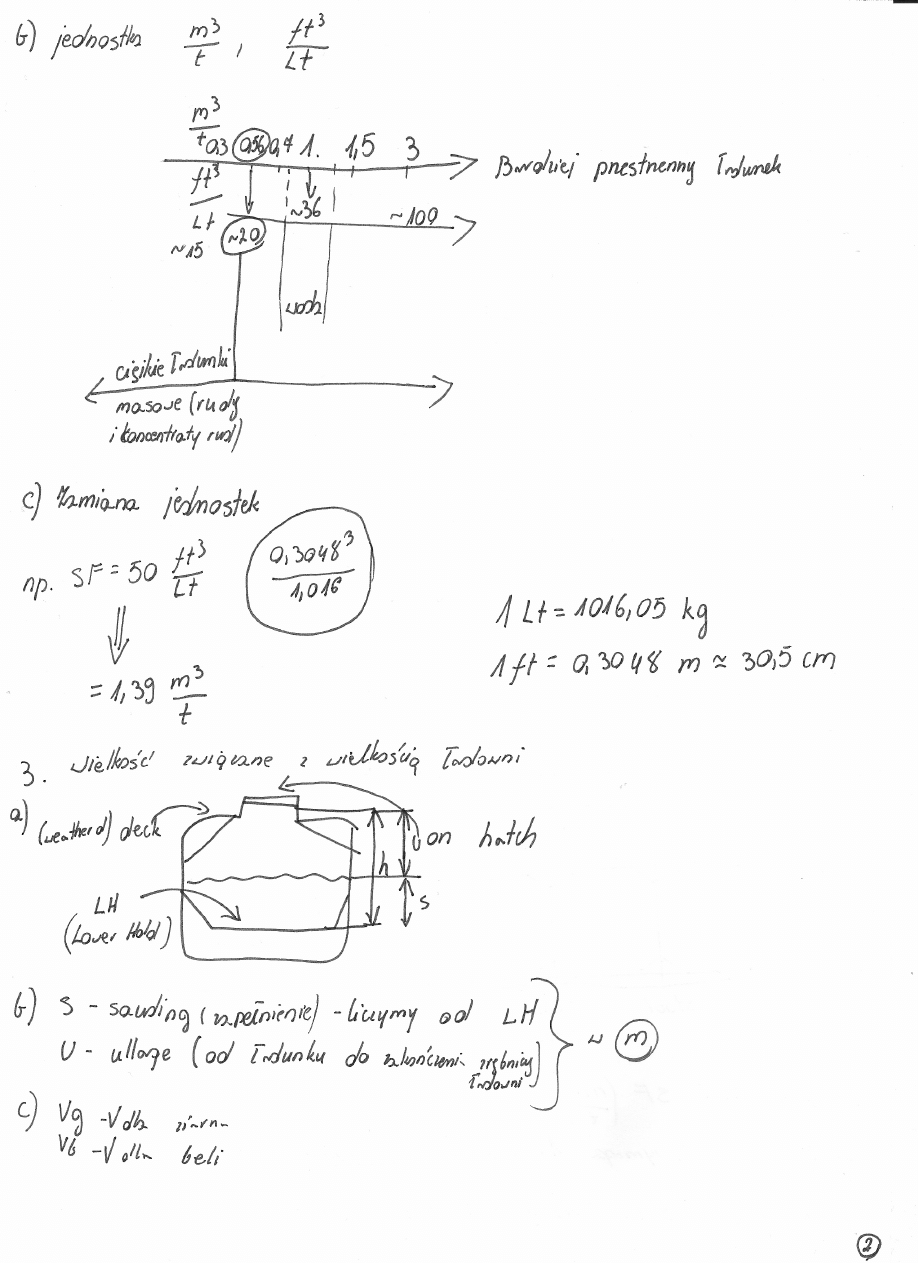 b) jednostka m³/t , ft³/Lt
m³/t 0,3 0,56 0,7 1. 1,5 3
Bardziej przestrzenny ładunek
ft³/Lt ~36 ~109
~15 ~20
woda
ciężkie ładunki
masowe (rudy
i koncentraty rud)
c) Zamiana jednostek
np. SF = 50 ft³/Lt 0,3048³/1,016
1 Lt = 1016,05 kg
1 ft = 0,3048 m ≈ 30,5 cm
= 1,39 m³/t
3. Wielkość związane z wielkością ładowni
a) (weatherd) deck on hatch
h U
LH S
(Lower Hold)
b) S - sauding (zapełnienie) - liczymy od LH
U - ullage (od ładunku do zakończeni zrębnicy ładowni) w m
c) Vg - V dla ziarna
Vb - V dla beli
2